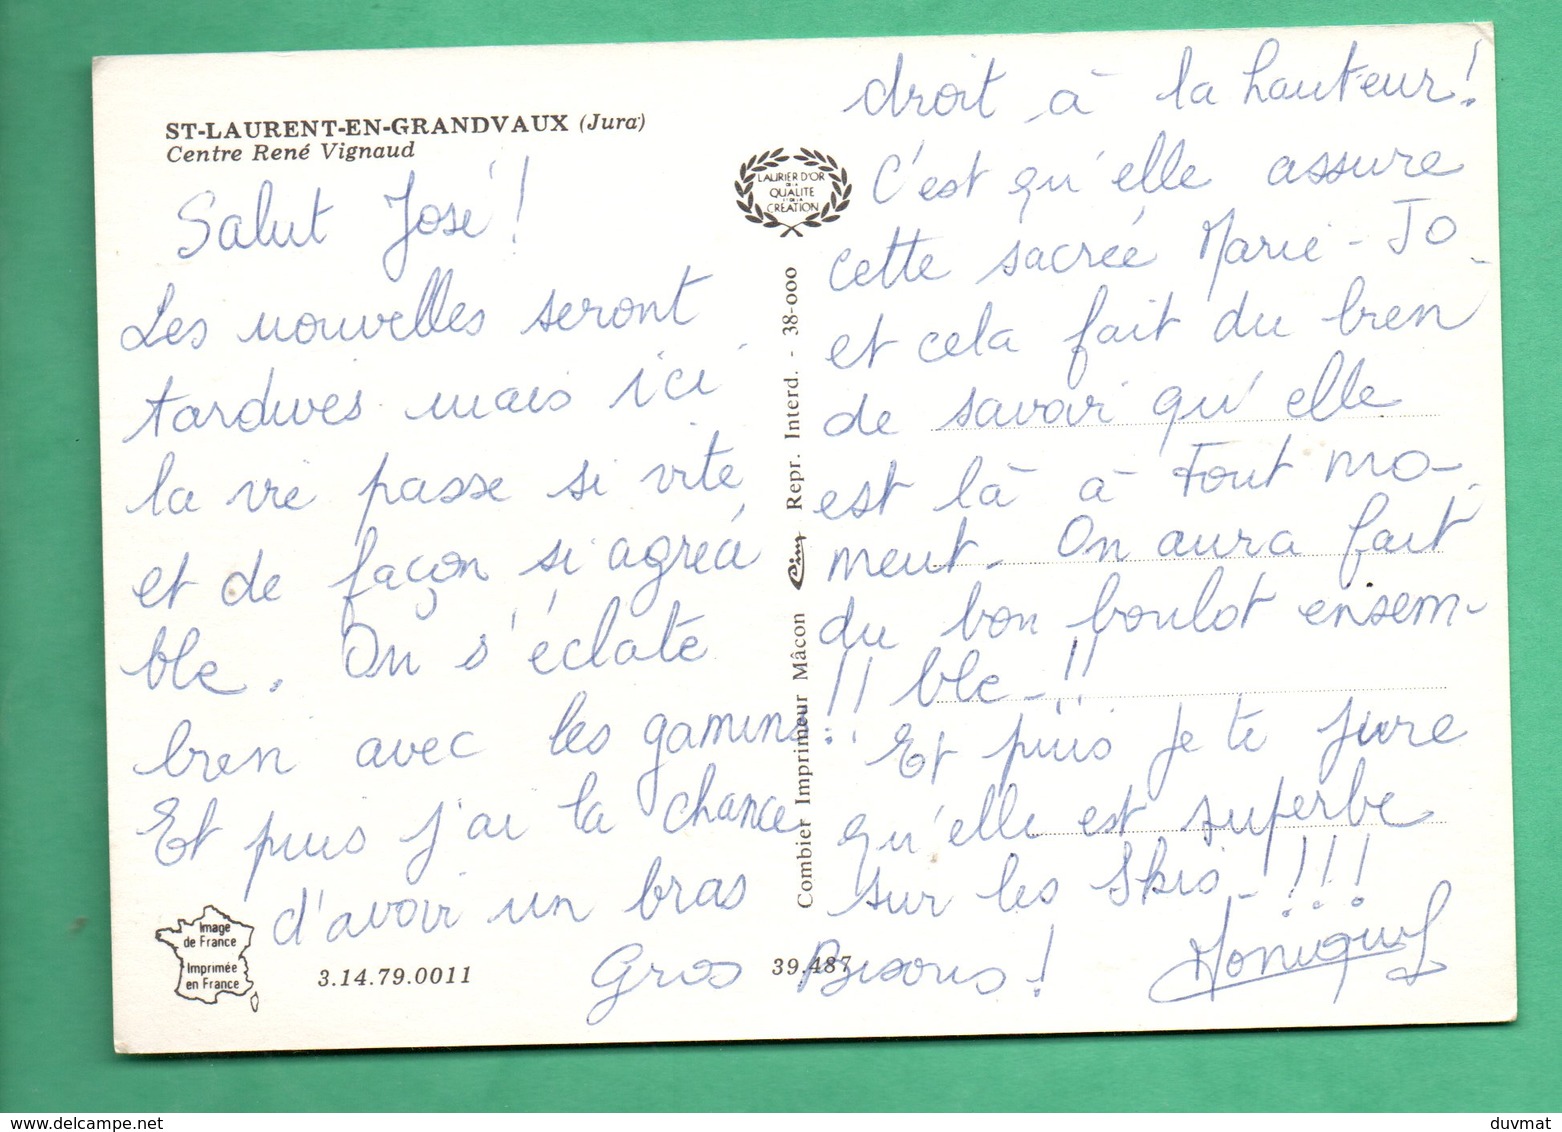 ST-LAURENT-EN-GRANDVAUX (Jura)
Centre René Vignaud
Salut José !
Les nouvelles seront
tardives mais ici
la vie passe si vite
et de façon si agréa
ble. On s'éclate
bien avec les gamins !!
Et puis j'ai la chance
d'avoir un bras
droit à la hauteur !
C'est qu'elle assure
cette sacrée Marie-Jo -
et cela fait du bien
de savoir qu'elle
est là à tout mo-
ment - On aura fait
du bon boulot ensem-
ble - !!
Et puis je te jure
qu'elle est superbe
sur les skis - !!!!
Gros Bisous !
Monique
LAURIER D'OR
DE LA
QUALITE
ET DE LA
CREATION
Combier Imprimeur Mâcon Cim Repr. Interd. - 38-000
Image
de France
Imprimée
en France
3.14.79.0011
39.487
duvmat